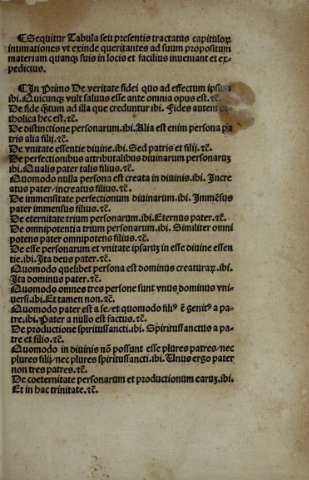 ¶Sequitur Tabula seu presentis tractatus capituloꝝ
intimationes vt exinde queritantes ad suum propositum
materiam quanqꝫ suis in locis et facilius inueniant et ex-
pedicius.
¶In Primo De veritate fidei quo ad effectum ipsius
ibi. Quicunqꝫ vult saluus esse ante omnia opus est. ꝛc̄.
De fide q̄ntum ad illa que creduntur ibi. Fides autem ca
tholica hec est. ꝛc̄.
De distinctione personarum. ibi. Alia est enim persona pa
tris alia filij. ꝛc̄.
De vnitate essentie diuine. ibi. Sed patris et filij. ꝛc̄.
De perfectionibus attributalibus diuinarum personarūꝫ
ibi. Qualis pater talis filius. ꝛc̄.
Quomodo nulla persona est creata in diuinis. ibi. Incre
atus pater increatus filius. ꝛc̄.
De immensitate perfectionum diuinarum. ibi. Immēsus
pater immensus filius. ꝛc̄.
De eternitate trium personarum. ibi. Eternus pater. ꝛc̄.
De omnipotentia trium personarum. ibi. Similiter omni
potens pater omnipotens filius. ꝛc̄.
De esse personarum et vnitate ipsarūꝫ in esse diuine essen
tie. ibi. Ita deus pater. ꝛc̄.
Quomodo quelibet persona est dominus creaturaꝝ. ibi.
Ita dominus pater. ꝛc̄.
Quomodo omnes tres persone sunt vnus dominus vni-
uersi. ibi. Et tamen non. ꝛc̄.
Quomodo pater est a se/ et quomodo filiꝰ ē genitꝰ a pa-
tre. ibi. Pater a nullo est factus. ꝛc̄.
De productione spiritussancti. ibi. Spiritussanctus a pa-
tre et filio. ꝛc̄.
Quomodo in diuinis nō possunt esse plures patres/ nec
plures filij/ nec plures spiritussancti. ibi. Unus ergo pater
non tres patres. ꝛc̄.
De coeternitate personarum et productionum earūꝫ. ibi.
Et in hac trinitate. ꝛc̄.